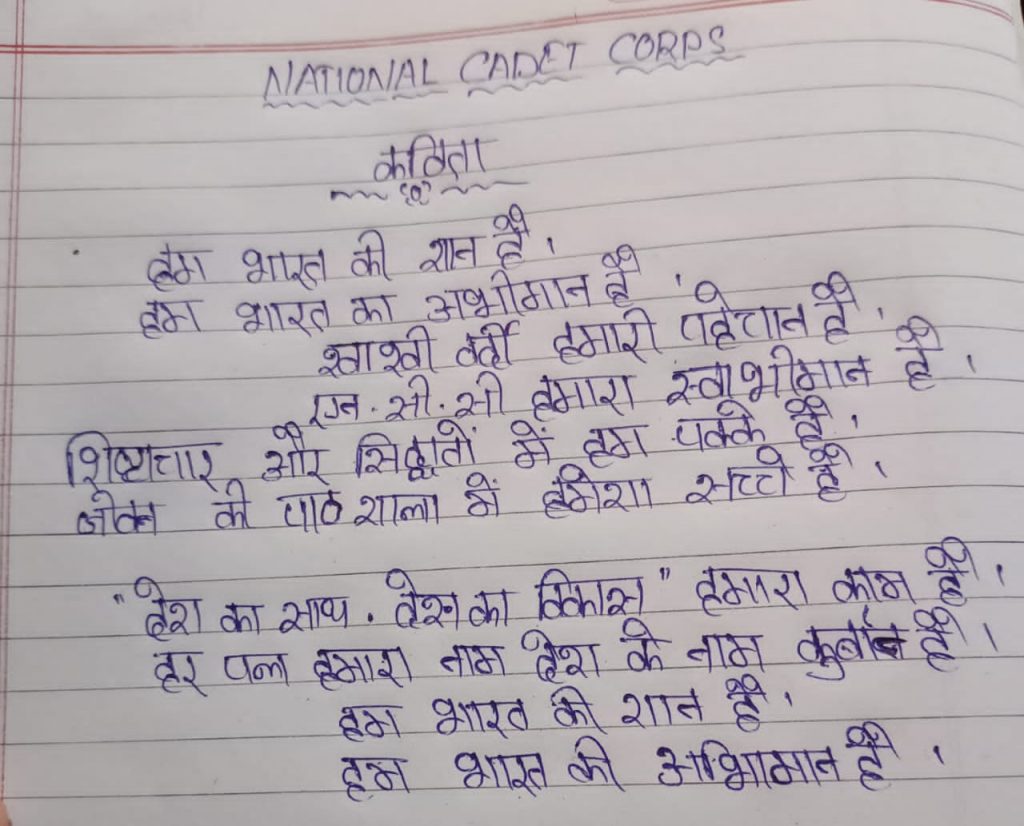 NATIONAL CADET CORPS
कविता
हम भारत की शान है।
हम भारत का अभीमान है।
खाखी वर्दी हमारी पहेचान है।
एन.सी.सी हमारा स्वाभीमान है।
शिष्टाचार और सिद्धातों में हम पक्के है।
जीवन की पाठशाला में हमेशा सच्चे है।
"देश का साथ. देश का विकास" हमारा काम है।
हर पल हमारा नाम देश के नाम कुर्बान है।
हम भारत की शान है।
हम भारत की अभिमान है।